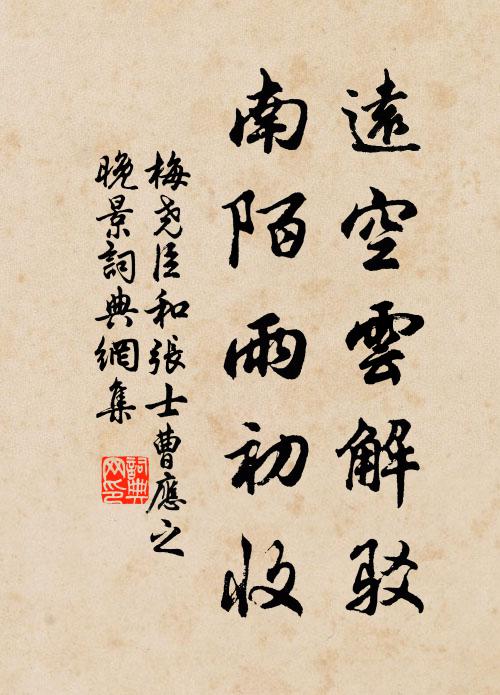 遠空雲解駁
南陌雨初收
梅堯臣和張士曹應之
晚景詞典網集
詞典
网印